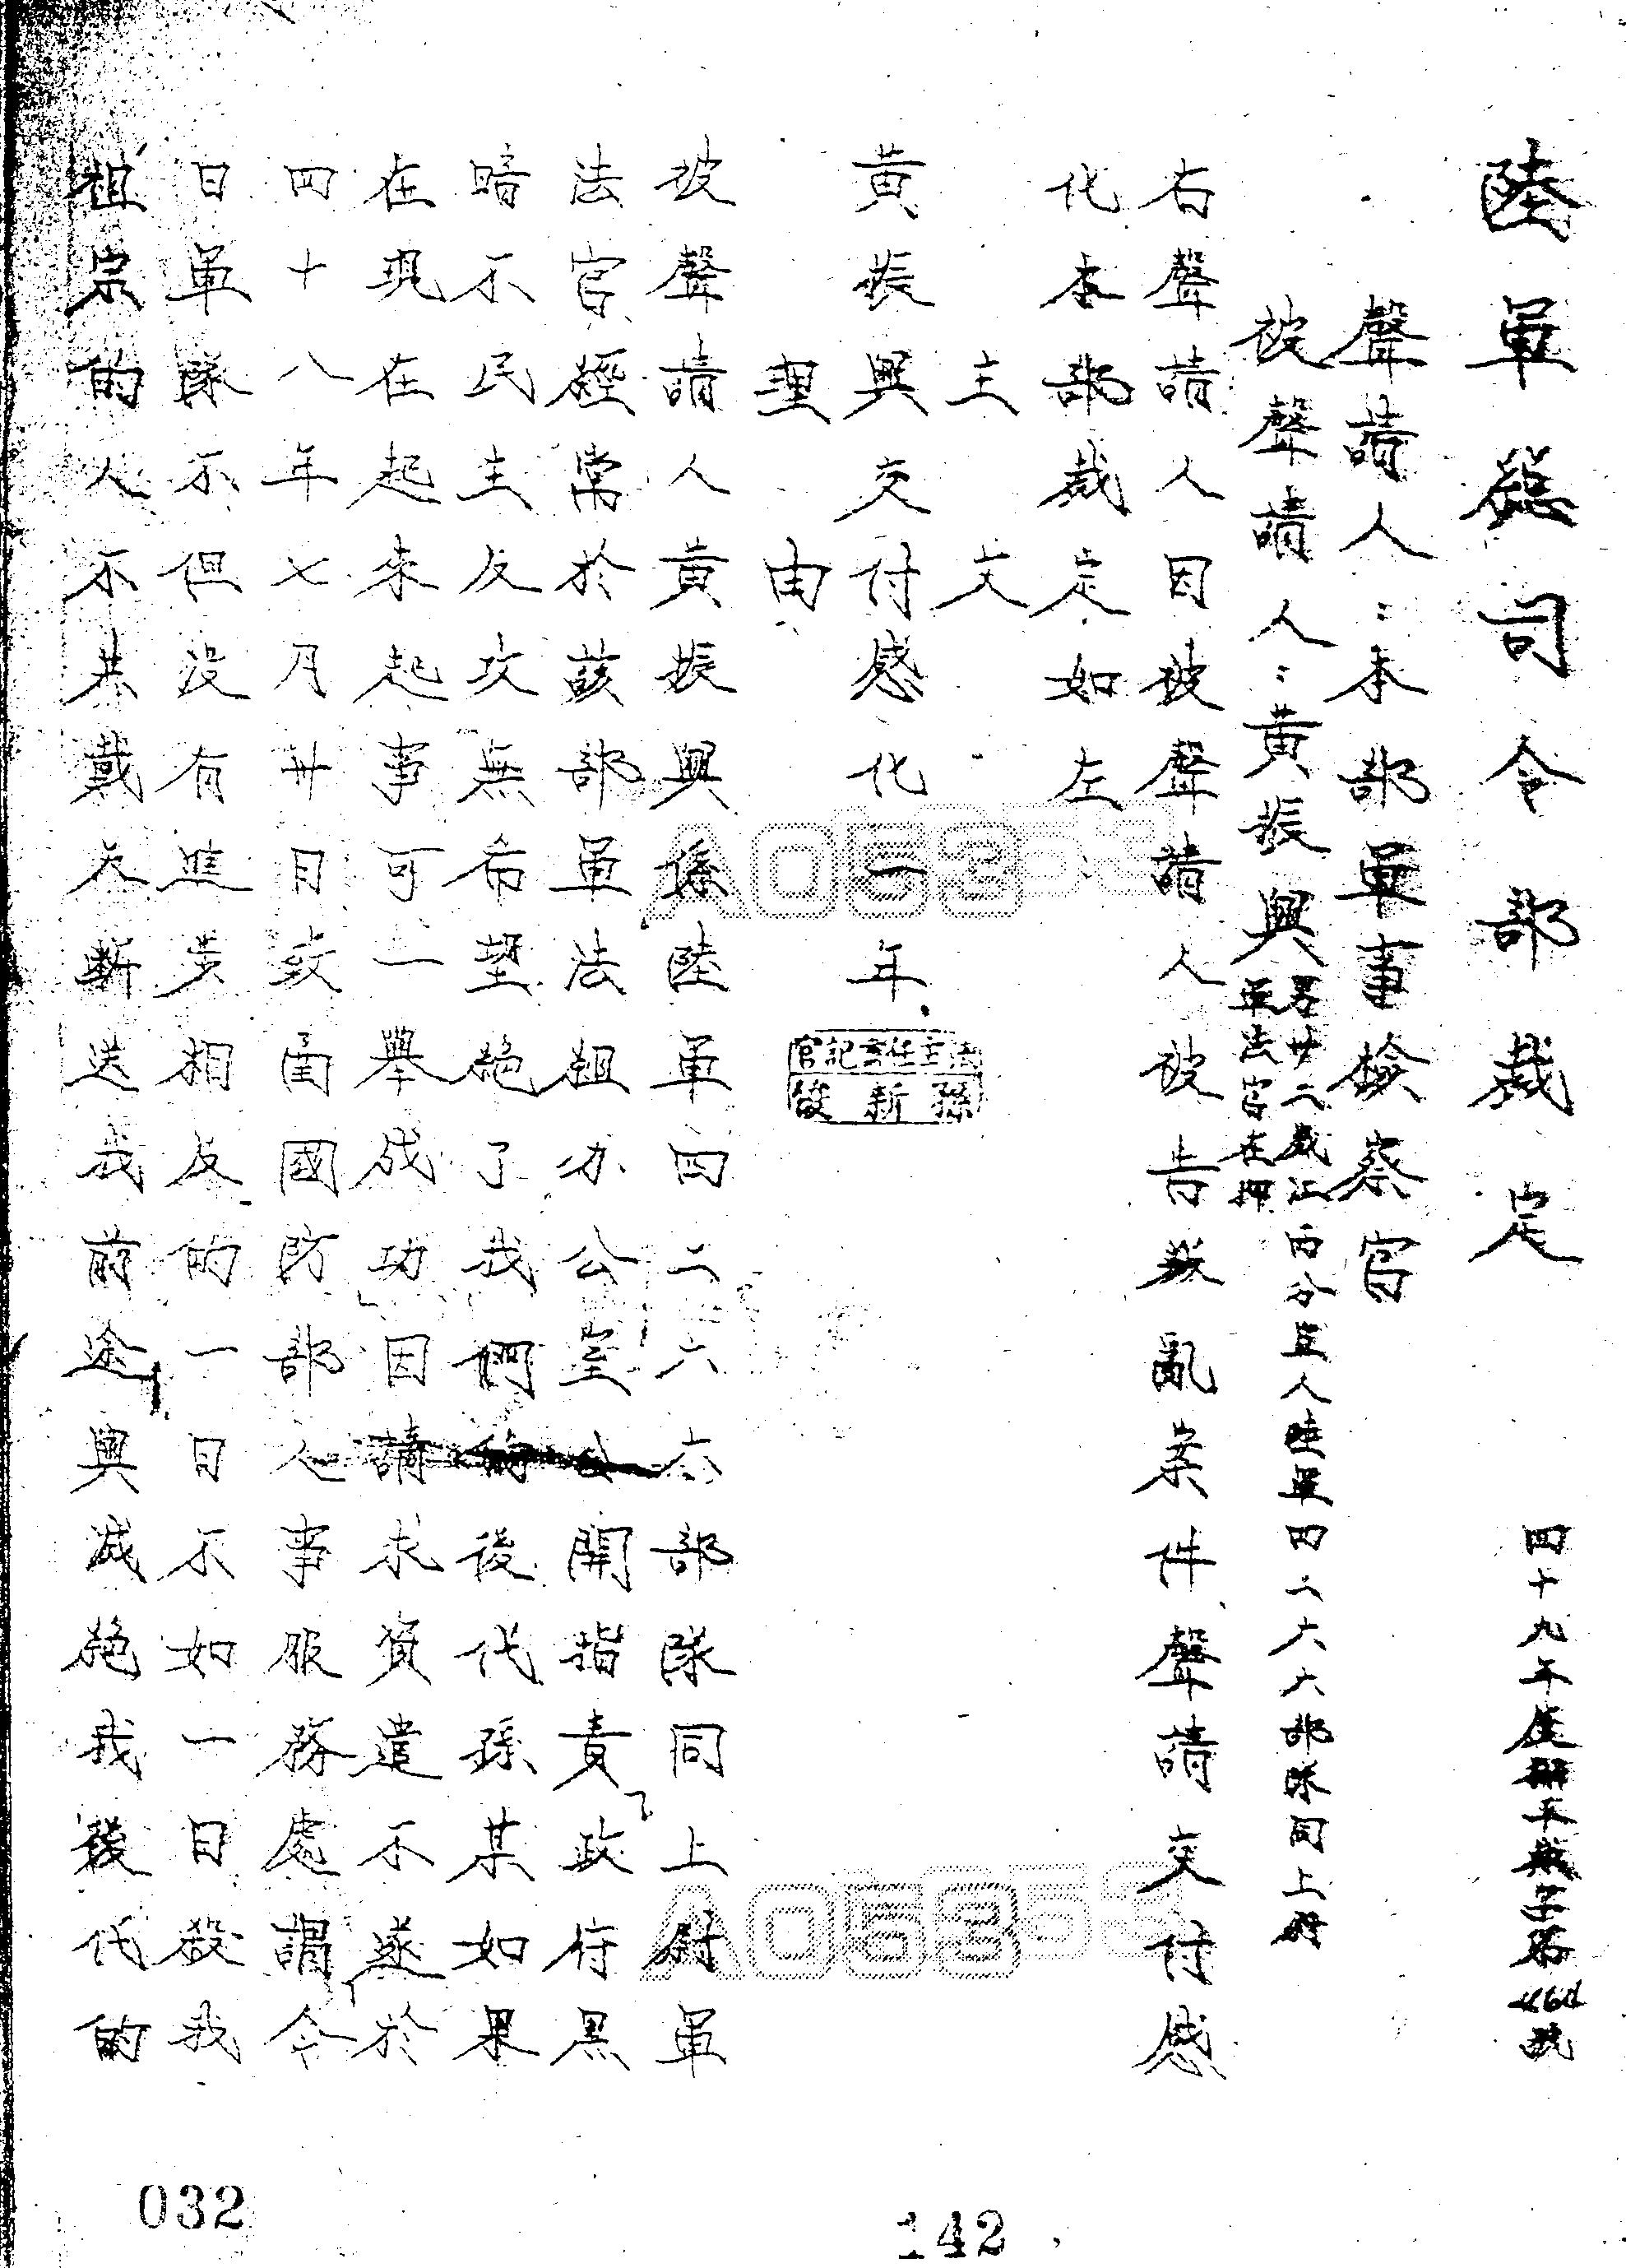 陸軍總司令部裁定
四十九年度
聲請人：本部軍事檢察官
被聲請人：黃振興
男廿二歲江西分宜人陸軍四二六六部隊同上尉
軍法官在押
右聲請人因被聲請人被告叛亂案件聲請交付感
化本部裁定如左
主文
黃振興交付感化一年
法主任書記官
孫新俊
理由
被聲請人黃振興係陸軍四二六六部隊同上尉軍
法官經常於該部軍法組办公室公開指責政府黑
暗不民主反攻無希望絶了我們的後代孫某如果
在現在起來起事可一舉成功因請求資遣不遂於
四十八年七月廿日致函國防部人事服務處謂今
日軍隊不但沒有進步相反的一日不如一日殺我
祖宗的人不共戴天斷送我前途與滅絶我後代的
A05353
A05353
032
142